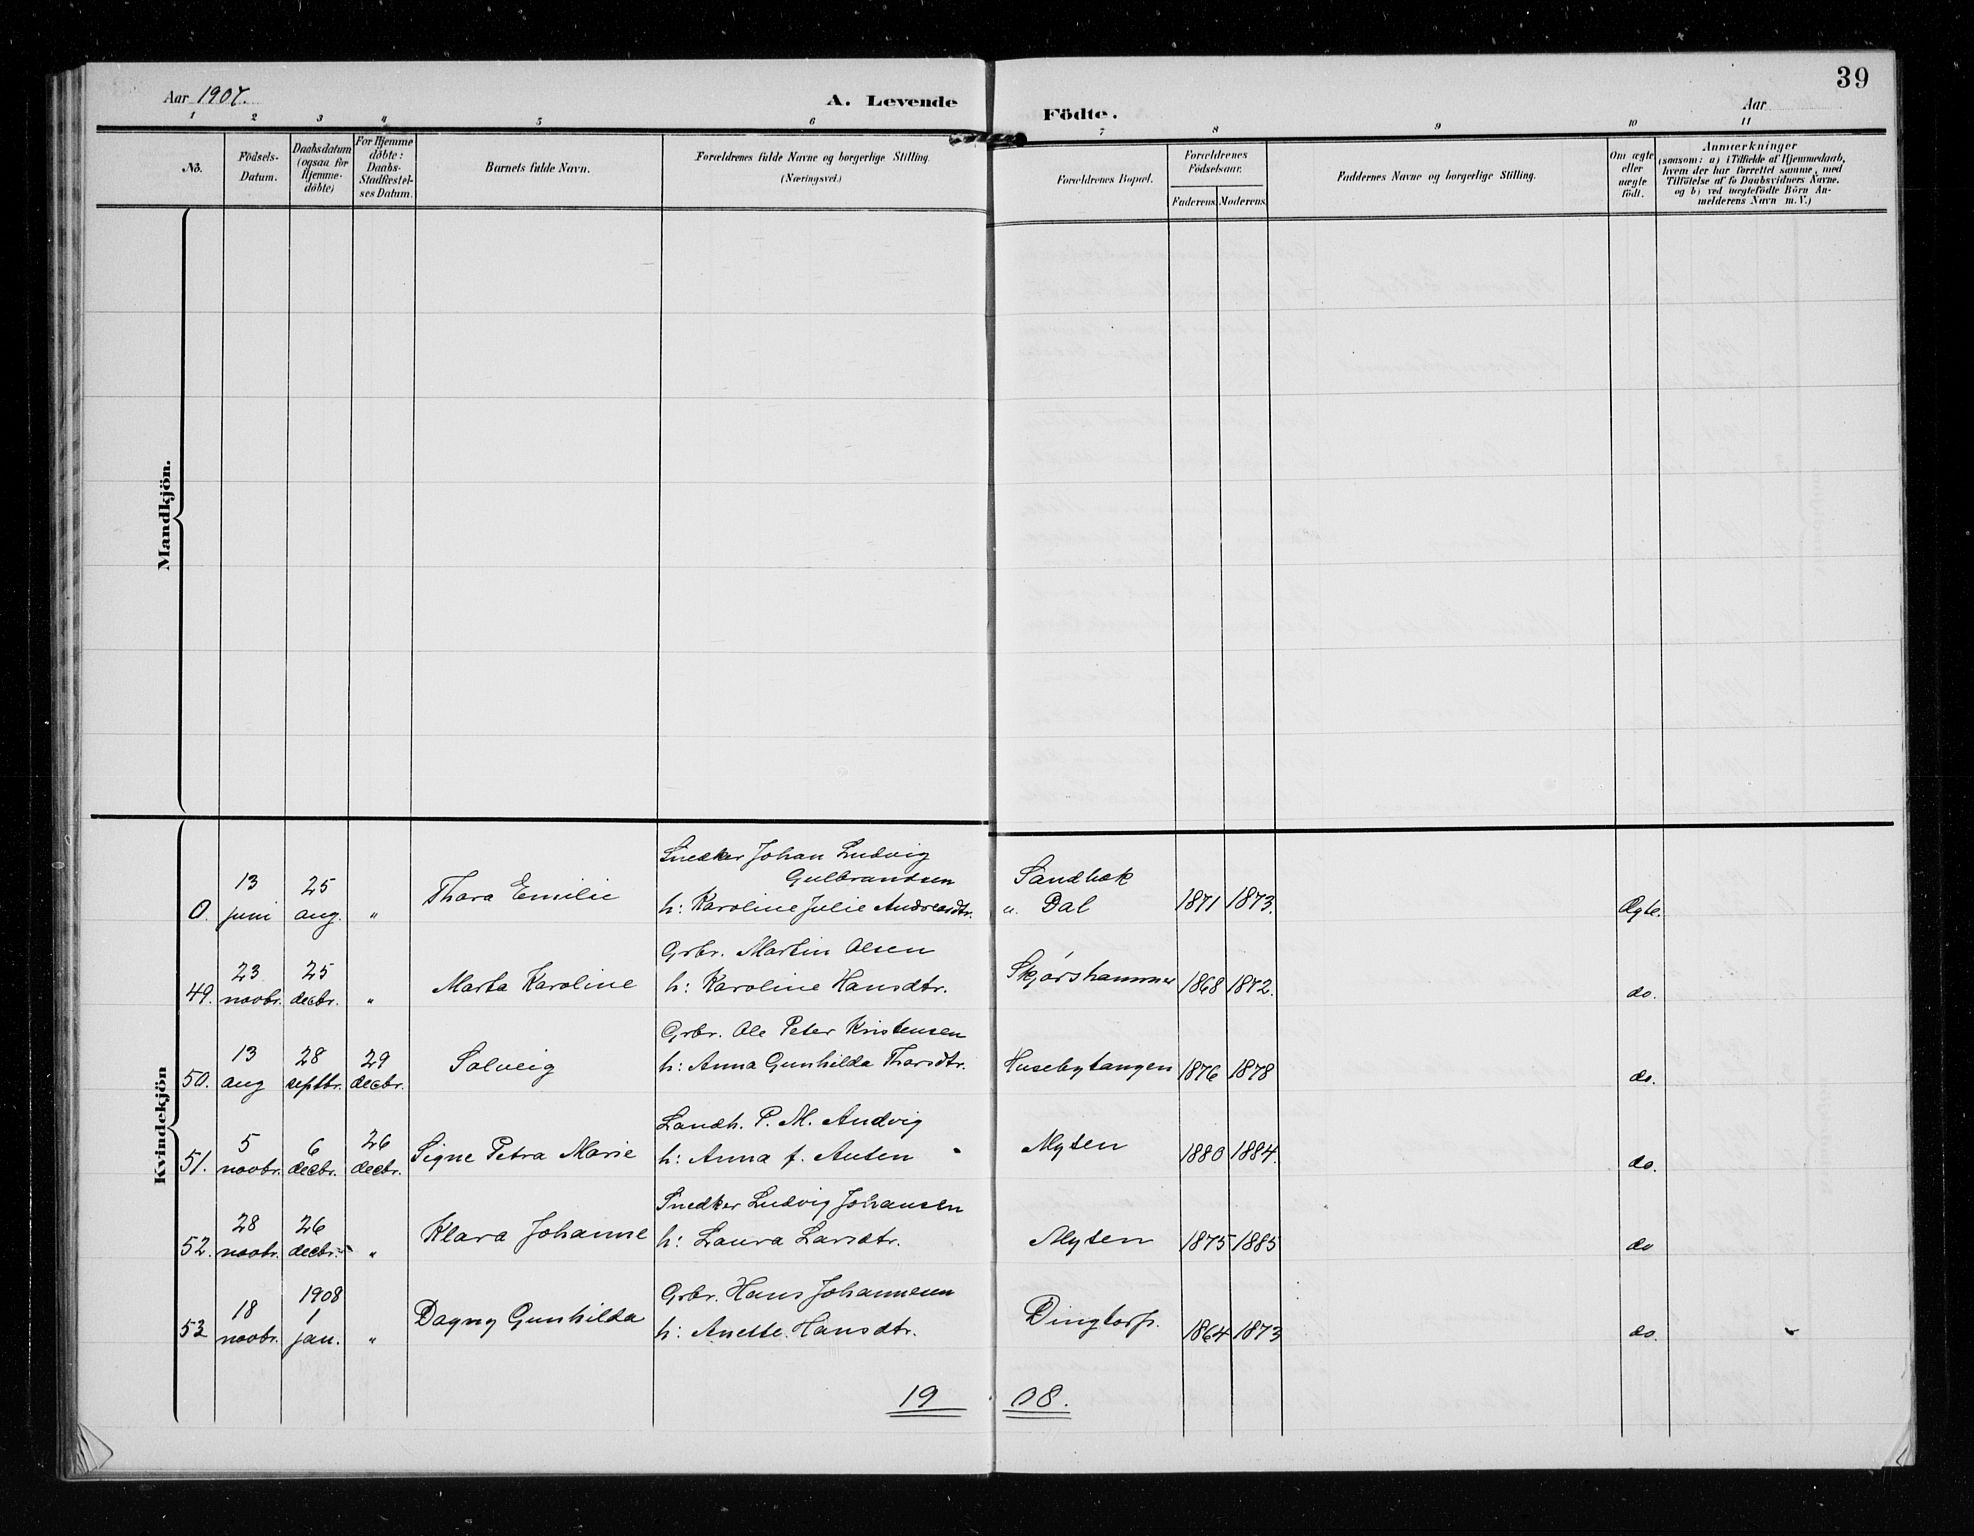 39
Aar 1907.
A. Levende Födte.
Aar
1 2 3 4 5 6 7 8 9 10 11
No.
Födsels-
Datum.
Daabsdatum
(ogsaa for
Hjemme-
döbte)
For Hjemme
döbte:
Daabs-
Stadfæstel-
ses Datum.
Barnets fulde Navn.
Forældrenes fulde Navne og borgerlige Stilling.
(Næringsvei.)
Forældrenes Bopæl.
Forældrenes
Födselsaar.
Faderens Moderens
Faddernes Navne og borgerlige Stilling.
Om ægte
eller
uægte
födt.
Anmærkninger
(saasom: a) i Tilfælde af Hjemmedaab,
hvem der har forrettet samme, med
Tilföielse af to Daabsvidners Navne.
og b) ved uægtefödte Börn An-
melderens Navn m. V.)
Mandkjön.
Kvindekjön
Snedker Johan Ludvig
Gulbrandsen
0. 13 juni 25 aug. „ Thora Emilie
h: Karoline Julie Andreasdtr.
Sandbæk
u. Dal 1871 1873. Ægte.
Grbr. Martin Olsen
49. 23 novbr. 25 decbr. „ Marta Karoline
h: Karoline Hansdtr.
Skjørshammer 1868 1872. do.
Grbr. Ole Peter Kristensen
50. 13 aug 28 septbr. 29 decbr. Solveig
h: Anna Gunhilda Thorsdtr.
Husebytangen 1876 1878 do.
Landh. P. M. Andvig
51. 5 novbr. 6 decbr. 26 decbr. Signe Petra Marie
h: Anna f. Ansten
Mysen 1880 1884. do.
Snedker Ludvig Johansen
52. 28 novbr. 26 decbr. „ Klara Johanne
h: Laura Larsdtr.
Mysen 1875 1885 do
Grbr. Hans Johannesen
53 18 novbr. 1908 1 jan. „ Dagny Gunhilda
h: Anette Hansdtr.
Dingtorp. 1864 1873 do.
19 08.